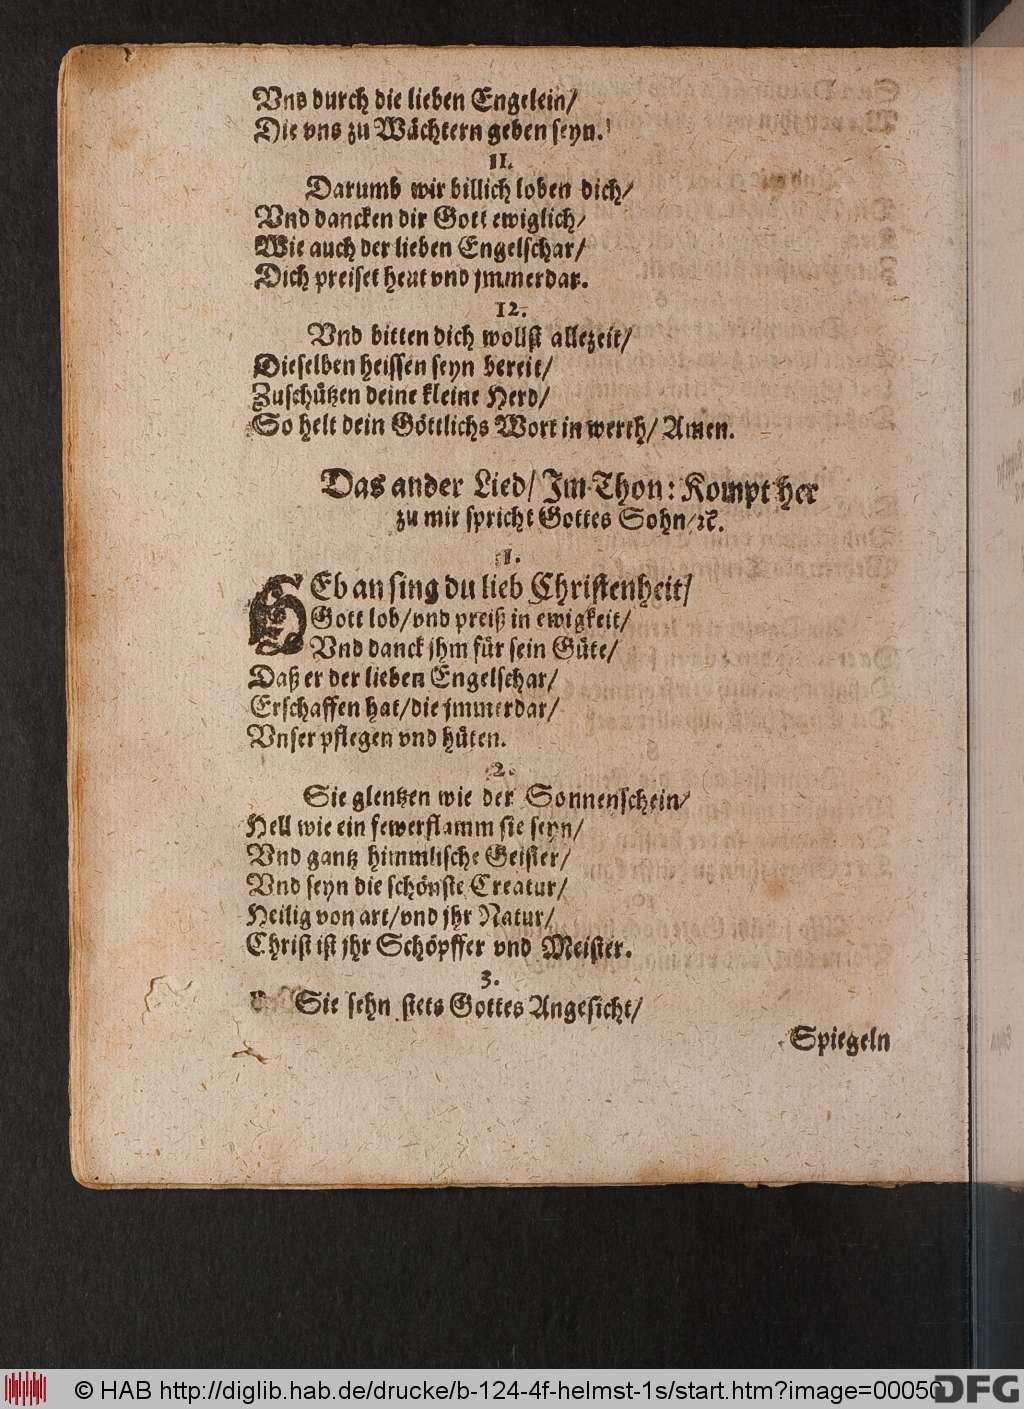 Vns durch die lieben Engelein/
Die vns zu Wächtern geben seyn.
11.
Darumb wir billich loben dich/
Vnd dancken dir Gott ewiglich/
Wie auch der lieben Engelschar/
Dich preiset heut vnd jmmerdar.
12.
Vnd bitten dich wollst allezeit/
Dieselben heissen seyn bereit/
Zuschützen deine kleine Herd/
So helt dein Göttlichs Wort in werth/ Amen.
Das ander Lied/ Im Thon: Kompt her
zu mir spricht Gottes Sohn/ꝛc.
1.
HEb an sing du lieb Christenheit/
Gott lob/vnd preiß in ewigkeit/
Vnd danck jhm für sein Güte/
Daß er der lieben Engelschar/
Erschaffen hat/die jmmerdar/
Vnser pflegen vnd hüten.
2.
Sie glentzen wie der Sonnenschein/
Hell wie ein fewerflamm sie seyn/
Vnd gantz himmlische Geister/
Vnd seyn die schönste Creatur/
Heilig von art/vnd jhr Natur/
Christ ist jhr Schöpffer vnd Meister.
3.
Sie sehn stets Gottes Angesicht/
Spiegeln
© HAB http://diglib.hab.de/drucke/b-124-4f-helmst-1s/start.htm?image=00050
DFG